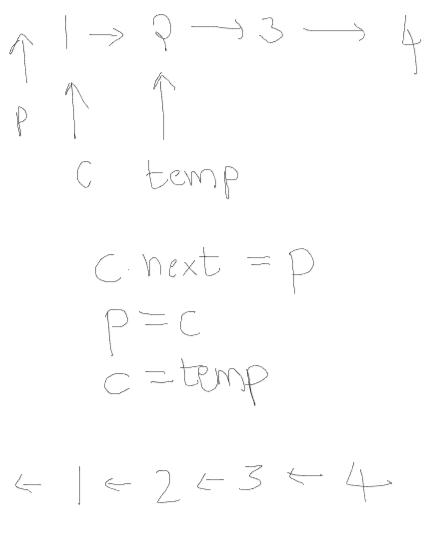 1 → 2 → 3 → 4
p
c temp
c.next = p
p = c
c = temp
← 1 ← 2 ← 3 ← 4